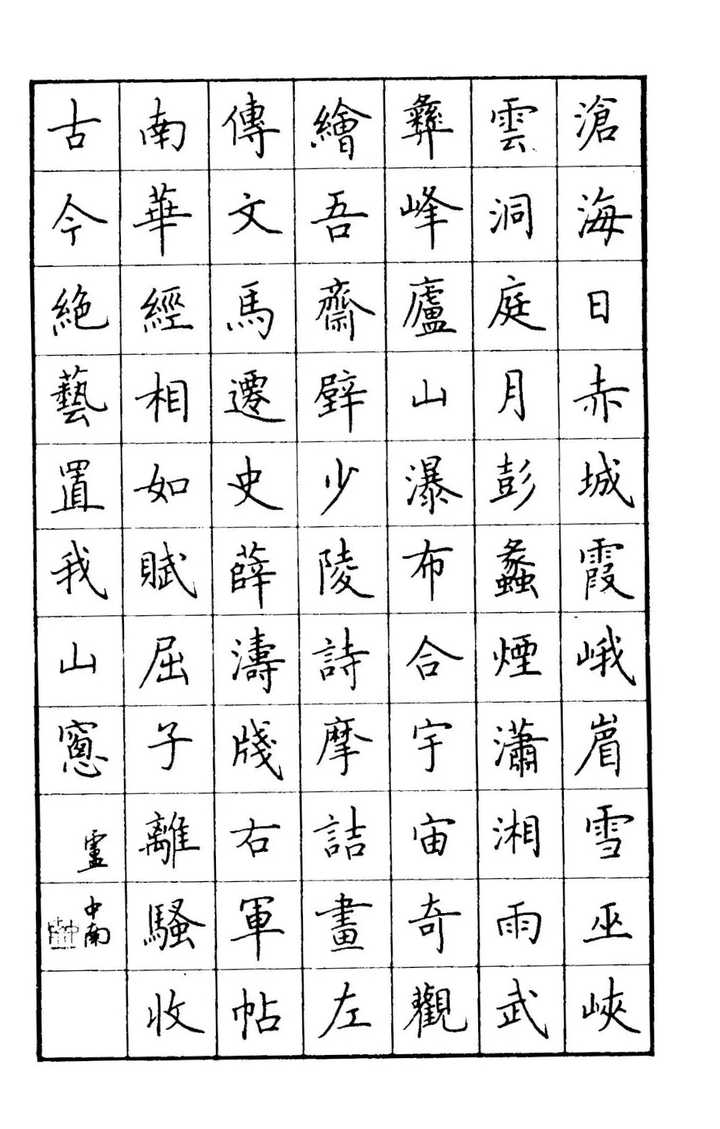 滄海日赤城霞峨眉雪巫峽
雲洞庭月彭蠡煙瀟湘雨武
彝峰廬山瀑布合宇宙奇觀
繪吾齋壁少陵詩摩詰畫左
傳文馬遷史薛濤牋右軍帖
南華經相如賦屈子離騷收
古今絶藝置我山窻
盧中南